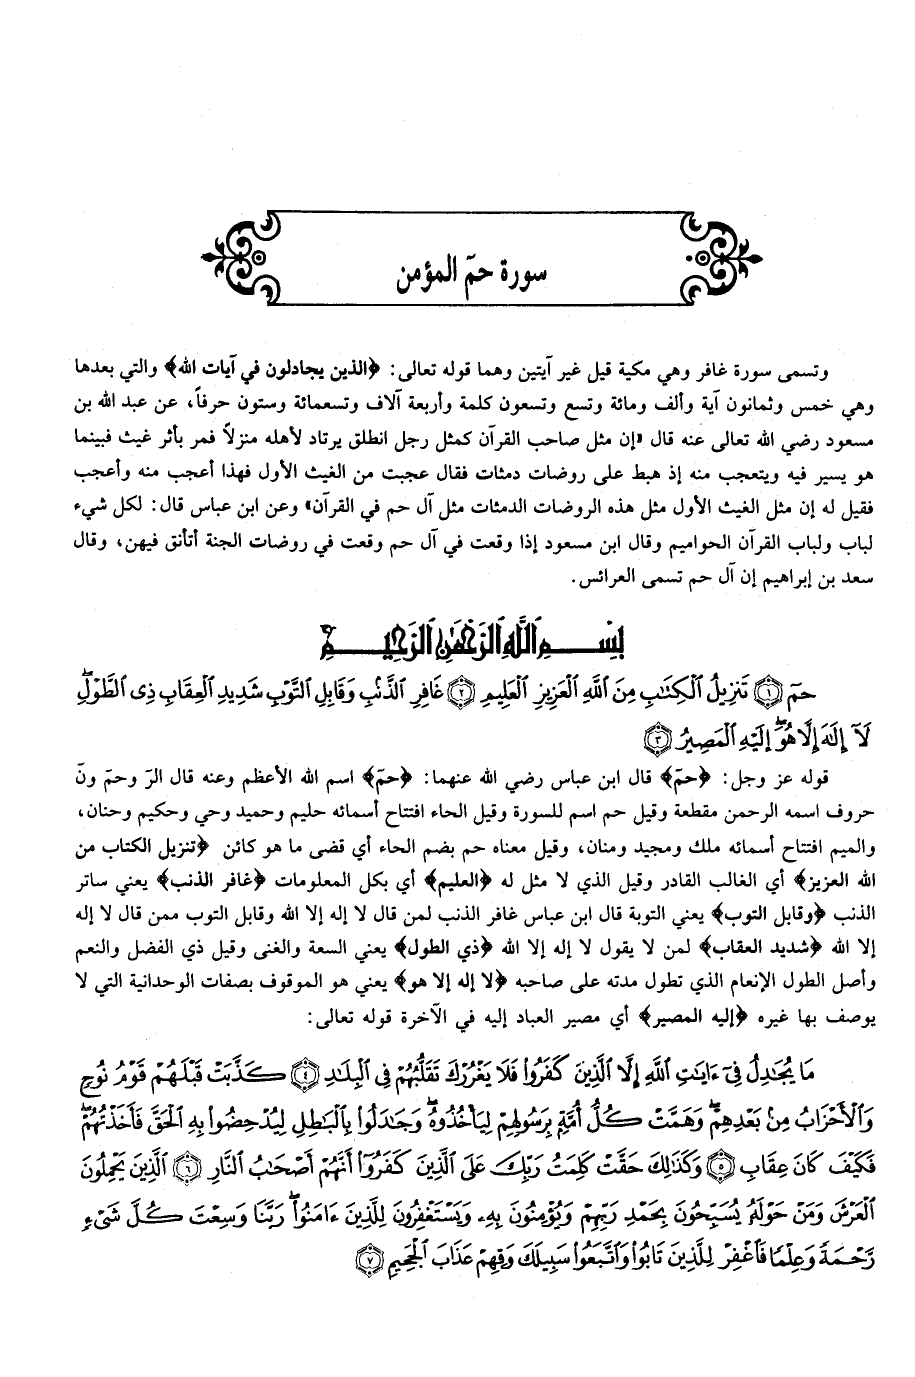 سورة حمّ المؤمن
وتسمى سورة غافر وهي مكية قيل غير آيتين وهما قوله تعالى: ﴿الذين يجادلون في آيات الله﴾ والتي بعدها
وهي خمس وثمانون آية وألف ومائة وتسع وتسعون كلمة وأربعة آلاف وتسعمائة وستون حرفاً، عن عبد الله بن
مسعود رضي الله تعالى عنه قال «إن مثل صاحب القرآن كمثل رجل انطلق يرتاد لأهله منزلاً فمر بأثر غيث فبينما
هو يسير فيه ويتعجب منه إذ هبط على روضات دمثات فقال عجبت من الغيث الأول فهذا أعجب منه وأعجب
فقيل له إن مثل الغيث الأول مثل هذه الروضات الدمثات مثل آل حم في القرآن» وعن ابن عباس قال: لكل شيء
لباب ولباب القرآن الحواميم وقال ابن مسعود إذا وقعت في آل حم وقعت في روضات الجنة أتأنق فيهن، وقال
سعد بن إبراهيم إن آل حم تسمى العرائس.
بِسْمِ اللَّهِ الرَّحْمَٰنِ الرَّحِيمِ
حمٓ ﴿١﴾ تَنزِيلُ ٱلْكِتَٰبِ مِنَ ٱللَّهِ ٱلْعَزِيزِ ٱلْعَلِيمِ ﴿٢﴾ غَافِرِ ٱلذَّنۢبِ وَقَابِلِ ٱلتَّوْبِ شَدِيدِ ٱلْعِقَابِ ذِى ٱلطَّوْلِۖ
لَآ إِلَٰهَ إِلَّا هُوَۖ إِلَيْهِ ٱلْمَصِيرُ ﴿٣﴾
قوله عز وجل: ﴿حمّ﴾ قال ابن عباس رضي الله عنهما: ﴿حمّ﴾ اسم الله الأعظم وعنه قال الرَ وحمَ ونَ
حروف اسمه الرحمن مقطعة وقيل حم اسم للسورة وقيل الحاء افتتاح أسمائه حليم وحميد وحي وحكيم وحنان،
والميم افتتاح أسمائه ملك ومجيد ومنان، وقيل معناه حم بضم الحاء أي قضى ما هو كائن ﴿تنزيل الكتاب من
الله العزيز﴾ أي الغالب القادر وقيل الذي لا مثل له ﴿العليم﴾ أي بكل المعلومات ﴿غافر الذنب﴾ يعني ساتر
الذنب ﴿وقابل التوب﴾ يعني التوبة قال ابن عباس غافر الذنب لمن قال لا إله إلا الله وقابل التوب ممن قال لا إله
إلا الله ﴿شديد العقاب﴾ لمن لا يقول لا إله إلا الله ﴿ذي الطول﴾ يعني السعة والغنى وقيل ذي الفضل والنعم
وأصل الطول الإنعام الذي تطول مدته على صاحبه ﴿لا إله إلا هو﴾ يعني هو الموقوف بصفات الوحدانية التي لا
يوصف بها غيره ﴿إليه المصير﴾ أي مصير العباد إليه في الآخرة قوله تعالى:
مَا يُجَٰدِلُ فِىٓ ءَايَٰتِ ٱللَّهِ إِلَّا ٱلَّذِينَ كَفَرُوا۟ فَلَا يَغْرُرْكَ تَقَلُّبُهُمْ فِى ٱلْبِلَٰدِ ﴿٤﴾ كَذَّبَتْ قَبْلَهُمْ قَوْمُ نُوحٍ
وَٱلْأَحْزَابُ مِنۢ بَعْدِهِمْۖ وَهَمَّتْ كُلُّ أُمَّةٍۭ بِرَسُولِهِمْ لِيَأْخُذُوهُۖ وَجَٰدَلُوا۟ بِٱلْبَٰطِلِ لِيُدْحِضُوا۟ بِهِ ٱلْحَقَّ فَأَخَذْتُهُمْۖ
فَكَيْفَ كَانَ عِقَابِ ﴿٥﴾ وَكَذَٰلِكَ حَقَّتْ كَلِمَتُ رَبِّكَ عَلَى ٱلَّذِينَ كَفَرُوٓا۟ أَنَّهُمْ أَصْحَٰبُ ٱلنَّارِ ﴿٦﴾ ٱلَّذِينَ يَحْمِلُونَ
ٱلْعَرْشَ وَمَنْ حَوْلَهُۥ يُسَبِّحُونَ بِحَمْدِ رَبِّهِمْ وَيُؤْمِنُونَ بِهِۦ وَيَسْتَغْفِرُونَ لِلَّذِينَ ءَامَنُوا۟ۖ رَبَّنَا وَسِعْتَ كُلَّ شَىْءٍ
رَّحْمَةً وَعِلْمًا فَٱغْفِرْ لِلَّذِينَ تَابُوا۟ وَٱتَّبَعُوا۟ سَبِيلَكَ وَقِهِمْ عَذَابَ ٱلْجَحِيمِ ﴿٧﴾